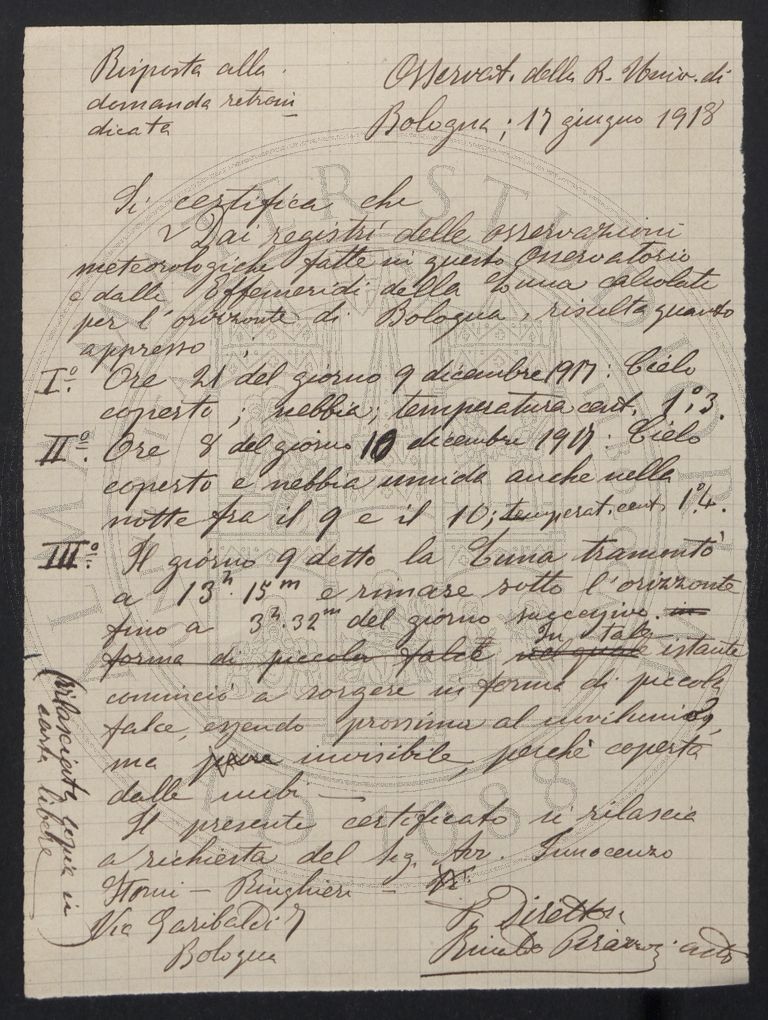 Risposta alla
domanda retroin
dicata
Osservat. della R. Univ. di
Bologna, 17 giugno 1918
Si certifica che
Dai registri delle osservazioni
meteorologiche fatte in questo Osservatorio
e dalle Effemeridi della Luna calcolate
per l'orizzonte di Bologna, risulta quanto
appresso
I.º Ore 21 del giorno 9 dicembre 1917: Cielo
coperto; nebbia; temperatura cent. 1º.3.
IIº. Ore 8 del giorno 10 dicembre 1917: Cielo
coperto e nebbia umida anche nella
notte fra il 9 e il 10; temperat. cent. 1º.4.
IIIº. Il giorno 9 detto la Luna tramontò
a 13h. 15m e rimase sotto l'orizzonte
fino a 3h.32m del giorno successivo. in
forma di piccola falce nel quale In tale istante
cominciò a sorgere in forma di piccola
falce, essendo prossima al novilunio,
ma pure invisibile, perchè coperta
dalle nubi —
Il presente certificato si rilascia
a richiesta del Sig. Avv. Innocenzo
Storni - Ringhieri -
Via Garibaldi 7
Bologna
Il Direttore
(rilasciata copia in
carta libera)
UNIVERSITÀ DI BOLOGNA
AD 1088